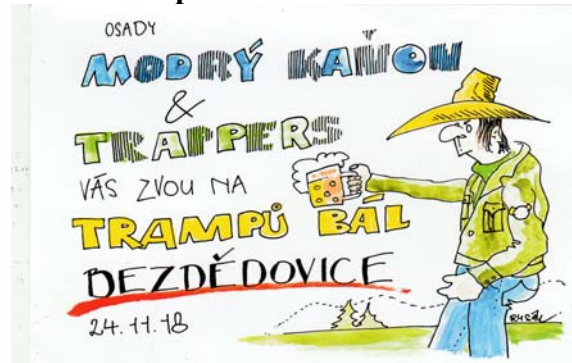 OSADY
MODRÝ KAŇON
&
TRAPPERS
VÁS ZVOU NA
TRAMPŮ BÁL
BEZDĚDOVICE
24.11.18